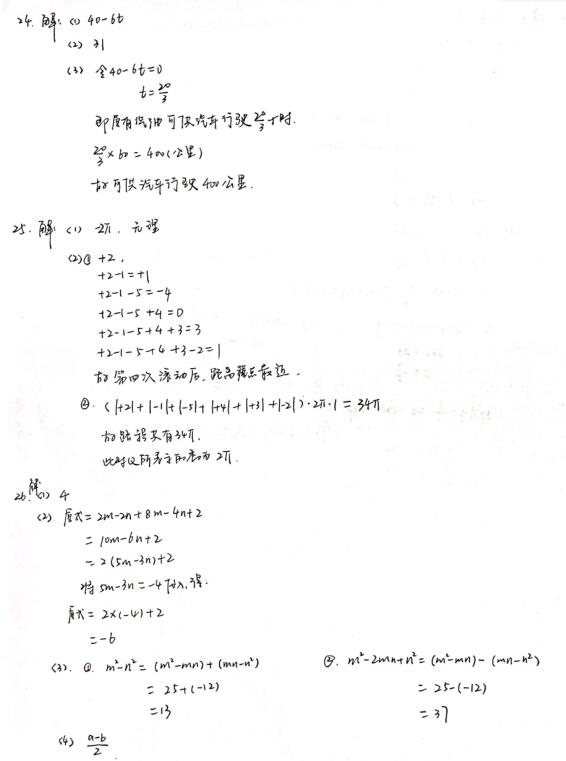 24. 解: (1) 40-6t
(2) 31
(3) 令40-6t=0
t=20/3
即原有汽油可供汽车行驶20/3小时.
20/3×60=400(公里)
故可供汽车行驶400公里.
25. 解: (1) -2π. 无理
(2)① +2,
+2-1=+1
+2-1-5=-4
+2-1-5+4=0
+2-1-5+4+3=3
+2-1-5+4+3-2=1
故第四次滚动后, 距离原点最近.
②. (|+2|+|-1|+|-5|+|+4|+|+3|+|-2|)·2π·1=34π
故路程共有34π.
此时Q所表示的数为2π.
26. 解(1) 4
(2) 原式=2m-2n+8m-4n+2
=10m-6n+2
=2(5m-3n)+2
将5m-3n=-4代入, 得.
原式=2×(-4)+2
=-6
(3). ①. m²-n²=(m²-mn)+(mn-n²)
=25+(-12)
=13
②. m²-2mn+n²=(m²-mn)-(mn-n²)
=25-(-12)
=37
(4) a-b/2